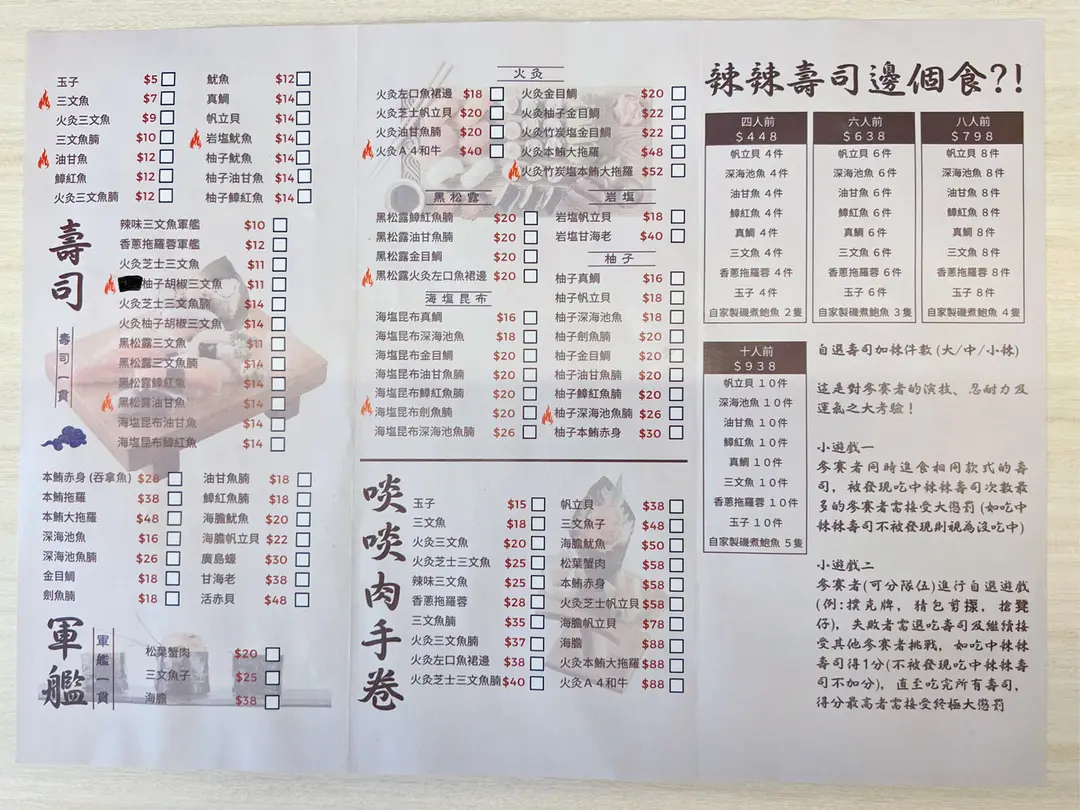 玉子 $5
三文魚 $7
火灸三文魚 $9
三文魚腩 $10
油甘魚 $12
鱆紅魚 $12
火灸三文魚腩 $12
魷魚 $12
真鯛 $14
帆立貝 $14
岩塩魷魚 $14
柚子魷魚 $14
柚子油甘魚 $14
柚子鱆紅魚 $14
壽司
壽司一貫
辣味三文魚軍艦 $10
香蔥拖羅蓉軍艦 $12
火灸芝士三文魚 $11
柚子胡椒三文魚 $11
火灸芝士三文魚腩 $14
火灸柚子胡椒三文魚 $14
黑松露三文魚 $11
黑松露三文魚腩 $14
黑松露鱆紅魚 $14
黑松露油甘魚 $14
海塩昆布油甘魚 $14
海塩昆布鱆紅魚 $14
本鮪赤身 (吞拿魚) $28
本鮪拖羅 $38
本鮪大拖羅 $48
深海池魚 $16
深海池魚腩 $26
金目鯛 $18
劍魚腩 $18
油甘魚腩 $18
鱆紅魚腩 $18
海膽魷魚 $20
海膽帆立貝 $22
廣島蠔 $30
甘海老 $38
活赤貝 $48
軍艦
軍艦一貫
松葉蟹肉 $20
三文魚子 $25
海膽 $38
火灸
火灸左口魚裙邊 $18
火灸芝士帆立貝 $20
火灸油甘魚腩 $20
火灸A4和牛 $40
火灸金目鯛 $20
火灸柚子金目鯛 $22
火灸竹炭塩金目鯛 $22
火灸本鮪大拖羅 $48
火灸竹炭塩本鮪大拖羅 $52
黑松露
黑松露鱆紅魚腩 $20
黑松露油甘魚腩 $20
黑松露金目鯛 $20
黑松露火灸左口魚裙邊 $20
海塩昆布
海塩昆布真鯛 $16
海塩昆布深海池魚 $18
海塩昆布金目鯛 $20
海塩昆布油甘魚腩 $20
海塩昆布鱆紅魚腩 $20
海塩昆布劍魚腩 $20
海塩昆布深海池魚腩 $26
岩塩
岩塩帆立貝 $18
岩塩甘海老 $40
柚子
柚子真鯛 $16
柚子帆立貝 $18
柚子深海池魚 $18
柚子劍魚腩 $20
柚子金目鯛 $20
柚子油甘魚腩 $20
柚子鱆紅魚腩 $20
柚子深海池魚腩 $26
柚子本鮪赤身 $30
啖啖肉手卷
玉子 $15
三文魚 $18
火灸三文魚 $20
火灸芝士三文魚 $25
辣味三文魚 $25
香蔥拖羅蓉 $28
三文魚腩 $35
火灸三文魚腩 $37
火灸左口魚裙邊 $38
火灸芝士三文魚腩 $40
帆立貝 $38
三文魚子 $48
海膽魷魚 $50
松葉蟹肉 $58
本鮪赤身 $58
火灸芝士帆立貝 $58
海膽帆立貝 $78
海膽 $88
火灸本鮪大拖羅 $88
火灸A4和牛 $88
辣辣壽司邊個食?!
四人前
$448
帆立貝 4件
深海池魚 4件
油甘魚 4件
鱆紅魚 4件
真鯛 4件
三文魚 4件
香蔥拖羅蓉 4件
玉子 4件
自家製磯煮鮑魚 2隻
六人前
$638
帆立貝 6件
深海池魚 6件
油甘魚 6件
鱆紅魚 6件
真鯛 6件
三文魚 6件
香蔥拖羅蓉 6件
玉子 6件
自家製磯煮鮑魚 3隻
八人前
$798
帆立貝 8件
深海池魚 8件
油甘魚 8件
鱆紅魚 8件
真鯛 8件
三文魚 8件
香蔥拖羅蓉 8件
玉子 8件
自家製磯煮鮑魚 4隻
十人前
$938
帆立貝 10件
深海池魚 10件
油甘魚 10件
鱆紅魚 10件
真鯛 10件
三文魚 10件
香蔥拖羅蓉 10件
玉子 10件
自家製磯煮鮑魚 5隻
自選壽司加辣件數 (大/中/小辣)
這是對參賽者的演技、忍耐力及
運氣之大考驗！
小遊戲一
參賽者同時進食相同款式的壽
司，被發現吃中辣辣壽司次數最
多的參賽者需接受大懲罰 (如吃中
辣辣壽司不被發現則視為沒吃中)
小遊戲二
參賽者(可分隊伍)進行自選遊戲
(例:撲克牌，猜包剪揼，搶凳
仔)，失敗者需選吃壽司及繼續接
受其他參賽者挑戰，如吃中辣辣
壽司得1分(不被發現吃中辣辣壽
司不加分)，直至吃完所有壽司，
得分最高者需接受終極大懲罰